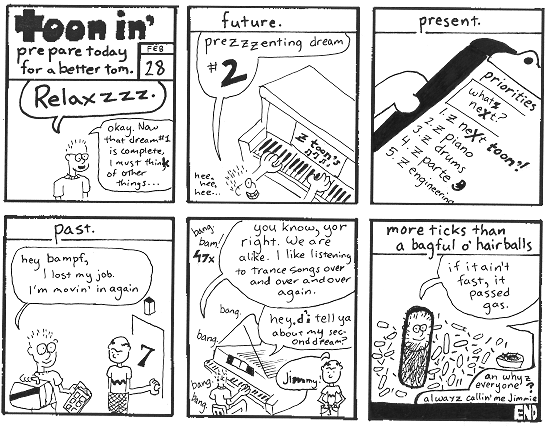 toon in'
prepare today
for a better tom.
FEB
28
Relaxzzz.
okay. Now
that dream#1
is complete,
I must think
of other
things...
future.
prezzzenting dream
#2
Z toon's
hee,
hee,
hee...
present.
priorities
what's
next?
1. Z next toon?!
2. Z piano
3. Z drums
4. Z parte
5. Z engineering
past.
hey bampf,
I lost my job.
I'm movin' in again
7
bang.
bam!
47x
you know, yor
right. We are
alike. I like listening
to trance songs over
and over and over
again.
bang.
hey, d's tell ya
about my sec-
ond dream?
bang.
bang.
bang.
Jimmy
more ticks than
a bagful o' hairballs
if it ain't
fast, it
passed
gas.
an whyz
everyone
alwayz callin' me Jimmie?
END